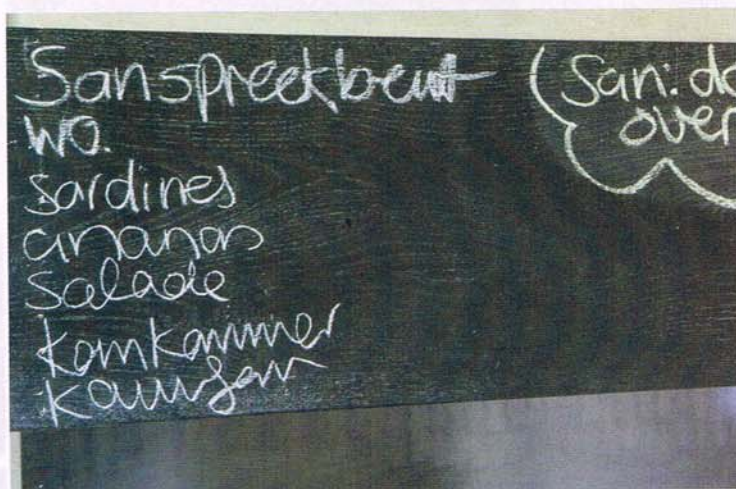 San spreekbeurt
wo.
sardines
ananas
salade
komkommer
San:
over